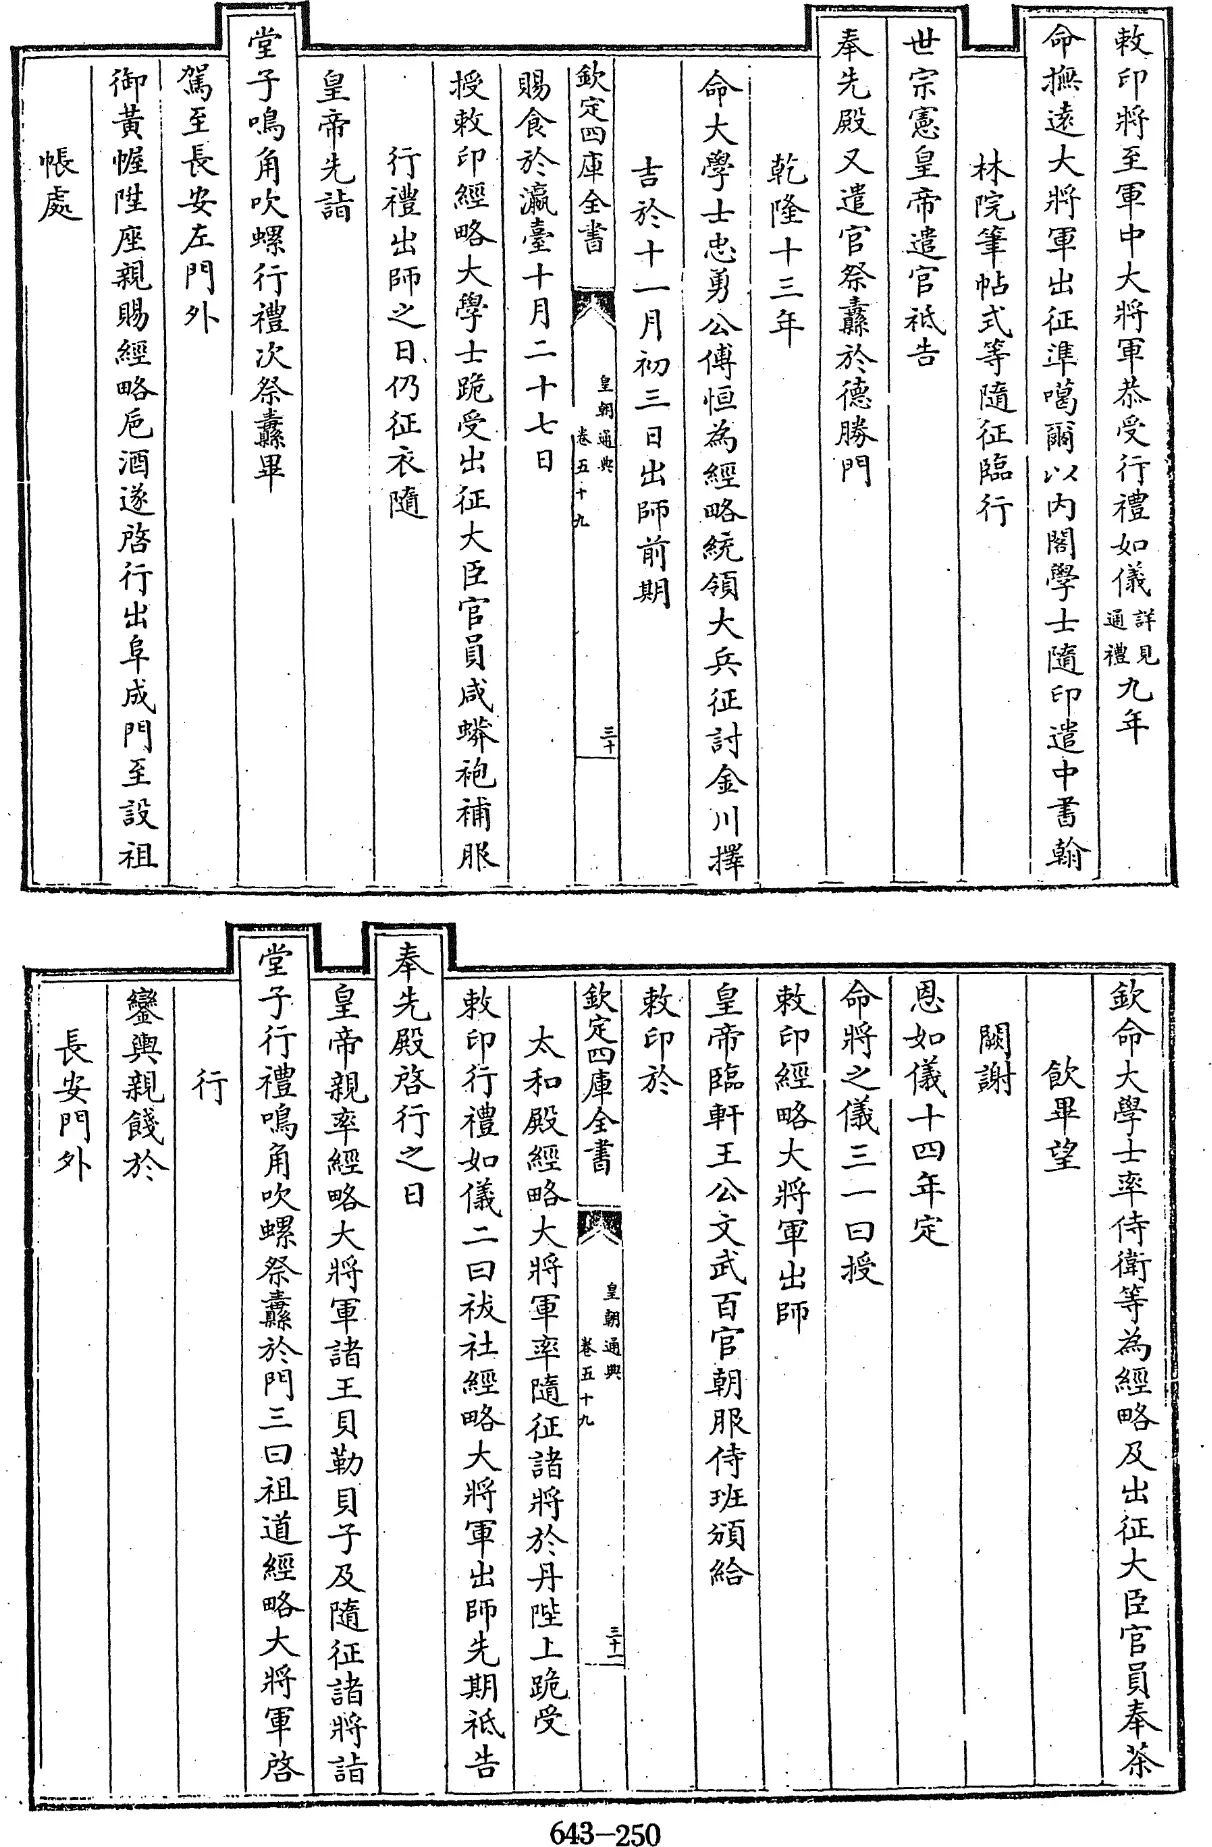 敕印將至軍中大將軍恭受行禮如儀詳見通禮九年
命撫遠大將軍出征準噶爾以內閣學士隨印遣中書翰
林院筆帖式等隨征臨行
世宗憲皇帝遣官祗告
奉先殿又遣官祭纛於德勝門
乾隆十三年
命大學士忠勇公傅恒為經略統領大兵征討金川擇
吉於十一月初三日出師前期
欽定四庫全書
皇朝通典
卷五十九
三十
賜食於瀛臺十月二十七日
授敕印經略大學士跪受出征大臣官員咸蟒袍補服
行禮出師之日仍征衣隨
皇帝先詣
堂子鳴角吹螺行禮次祭纛畢
駕至長安左門外
御黃幄陞座親賜經略卮酒遂啓行出阜成門至設祖
帳處
欽命大學士率侍衛等為經略及出征大臣官員奉茶
飲畢望
闕謝
恩如儀十四年定
命將之儀三一曰授
敕印經略大將軍出師
皇帝臨軒王公文武百官朝服侍班頒給
敕印於
欽定四庫全書
皇朝通典
卷五十九
三十一
太和殿經略大將軍率隨征諸將於丹陛上跪受
敕印行禮如儀二曰祓社經略大將軍出師先期祗告
奉先殿啓行之日
皇帝親率經略大將軍諸王貝勒貝子及隨征諸將詣
堂子行禮鳴角吹螺祭纛於門三曰祖道經略大將軍啓
行
鑾輿親餞於
長安門外
643-250